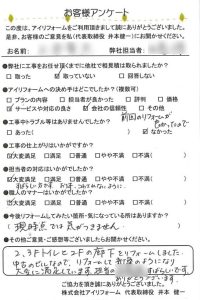 お客様アンケート
この度は、アイリフォームをご利用頂きまして誠にありがとうございました。
是非、お客様のご意見を私（代表取締役　井本健一）にお聞かせください。
お名前　弊社担当者：
●弊社に工事をお任せ頂くまでに他社で相見積は取られましたか？
□取った　☑取っていない　□回答しない
●アイリフォームへの決め手はどこでしたか？（複数可）
□プランの内容　□担当者が良かった　□評判　□価格
☑サービス対応の良さ　☑会社の信頼性　☑その他
前回のリフォームが
良かったので
●工事中トラブル等はありませんでしたか？
□あった（　　）　☑なかった
●工事の仕上がりはいかがですか？
☑大変満足　□満足　□普通　□やや不満　□不満（　　）
●担当者の対応はいかがでしたか？
☑大変満足　□満足　□普通　□やや不満　□不満
●職人のマナーはいかがでしたか？
☑大変満足　□満足　□普通　□やや不満　□不満（　　）
●今後リフォームしてみたい箇所・気になっている所はありますか？
（現時点では気がつきません）
●その他ご意見・ご感想等ございましたらお聞かせください。
2、3Fトイレと2Fの廊下をリフォームしました。
中古のビルなので、リフォームして新築のようになり
大変に満足しています。担当の
ご協力頂き誠にありがとうございました。
株式会社アイリフォーム　代表取締役　井本　健一